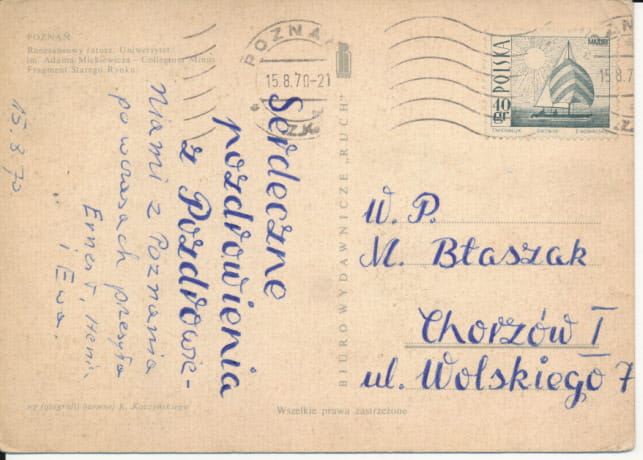 POZNAŃ
Renesansowy ratusz. Uniwersytet
im. Adama Mickiewicza - Collegium Minus
Fragment Starego Rynku
POZNAŃ
15.8.70-21
POLSKA
40 gr
15.8.7
15.8.70
Serdeczne
pozdrowienia
z Pozdrowie-
niami z Poznania
po wczasach przesyła
Ernest, Henia
i Ewa.
BIURO WYDAWNICZE „RUCH”
W. P.
M. Błaszak
Chorzów I
ul. Wolskiego 7
wg fotografii barwnej K. Kaczyńskiego
Wszelkie prawa zastrzeżone